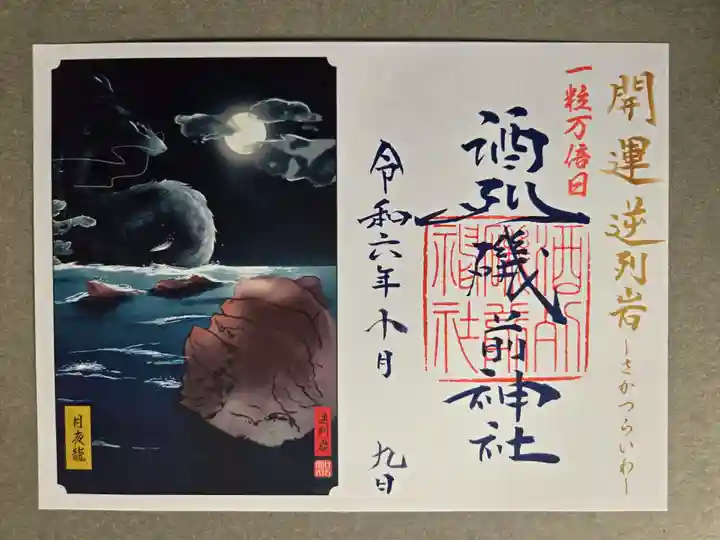 開運逆列岩
ーさかつらいわー
一粒万倍日
酒列磯前神社
令和六年十月
九日
月夜龍
逆列岩